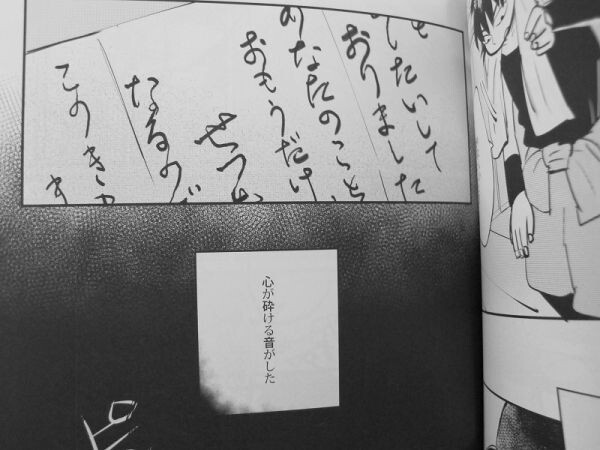 したいして
おりました
なたのこと
おもうだけ
せつ
なるので
このき
心が砕ける音がした
ピ